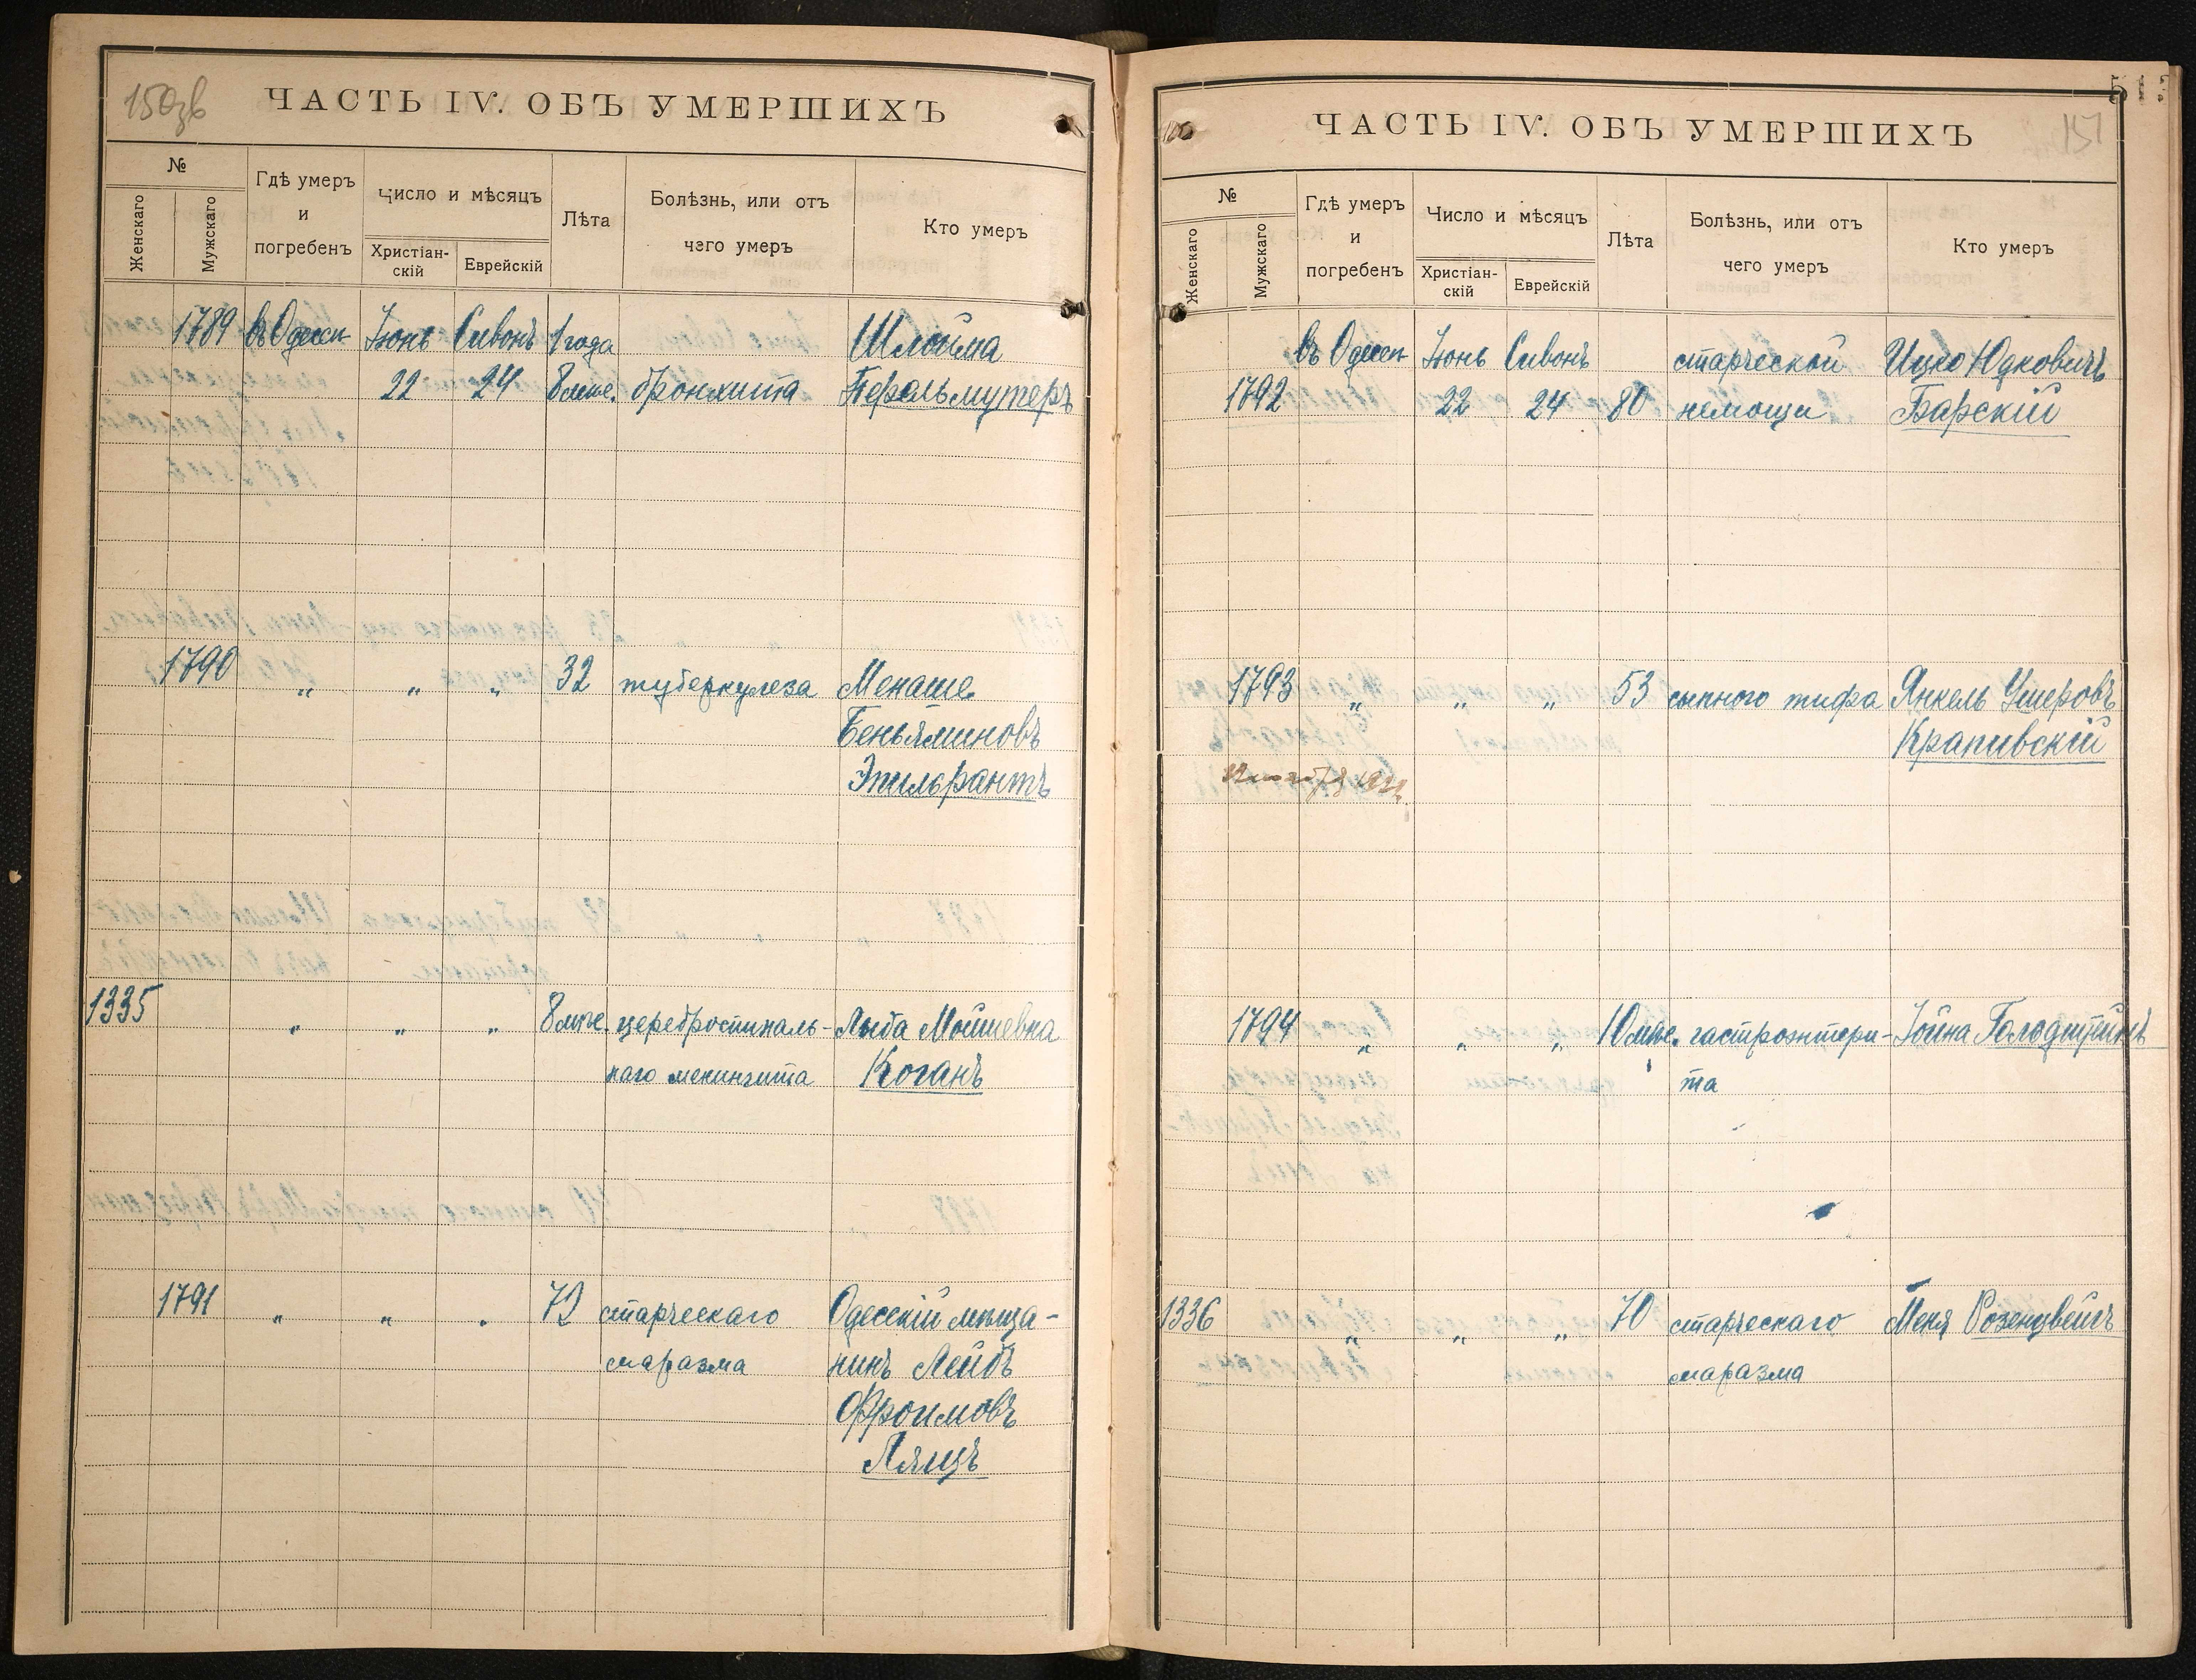 150зв
ЧАСТЬ IV. ОБЪ УМЕРШИХЪ
№
Женскаго
Мужскаго
Гдѣ умеръ
и
погребенъ
Число и мѣсяцъ
Христіан-
скій
Еврейскій
Лѣта
Болѣзнь, или отъ
чего умеръ
Кто умеръ
1789 въ Одессѣ Іюнь Сивонъ 1 года Шлойма
22 24 8 мѣс. бронхита Перельмутеръ
1790 „ „ „ 32 туберкулеза Менаше
Беньяминовъ
1335 „ „ „ 8 мѣс. цереброспиналь- Лыба Мойшевна
наго менингита Коганъ
1791 „ „ „ 72 старческаго Одесскій мѣща-
маразма нинъ Лейбъ
Фроимовъ
Лящъ
513
151
ЧАСТЬ IV. ОБЪ УМЕРШИХЪ
№
Женскаго
Мужскаго
Гдѣ умеръ
и
погребенъ
Число и мѣсяцъ
Христіан-
скій
Еврейскій
Лѣта
Болѣзнь, или отъ
чего умеръ
Кто умеръ
въ Одессѣ Іюнь Сивонъ старческой Ицко Юдковичъ
1792 22 24 80 немощи Барскій
1793 „ „ „ 53 сыпного тифа Янкель Ушеровъ
Крапивскій
1794 „ „ „ 10 мѣс. гастроэнтери- Іойна Голодштейнъ
та
1336 „ „ „ 70 старческаго Меня Розенцвейгъ
маразма